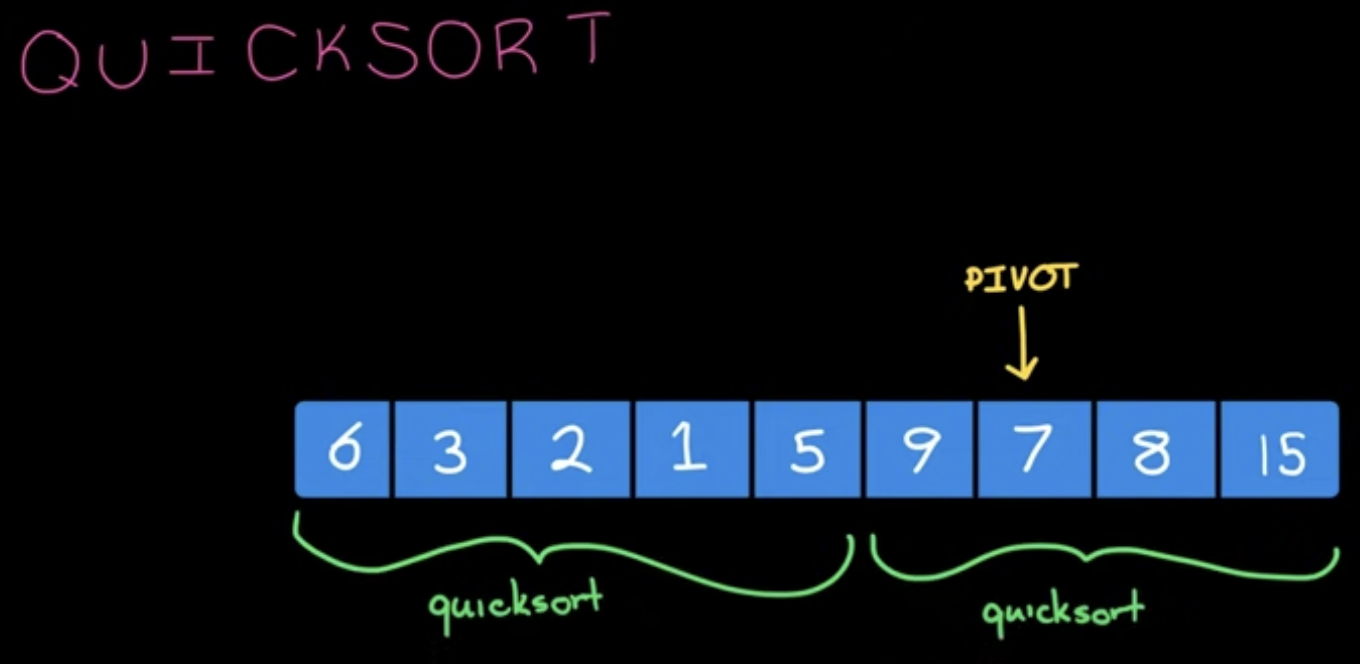 QUICKSORT
PIVOT
6 3 2 1 5 9 7 8 15
quicksort quicksort